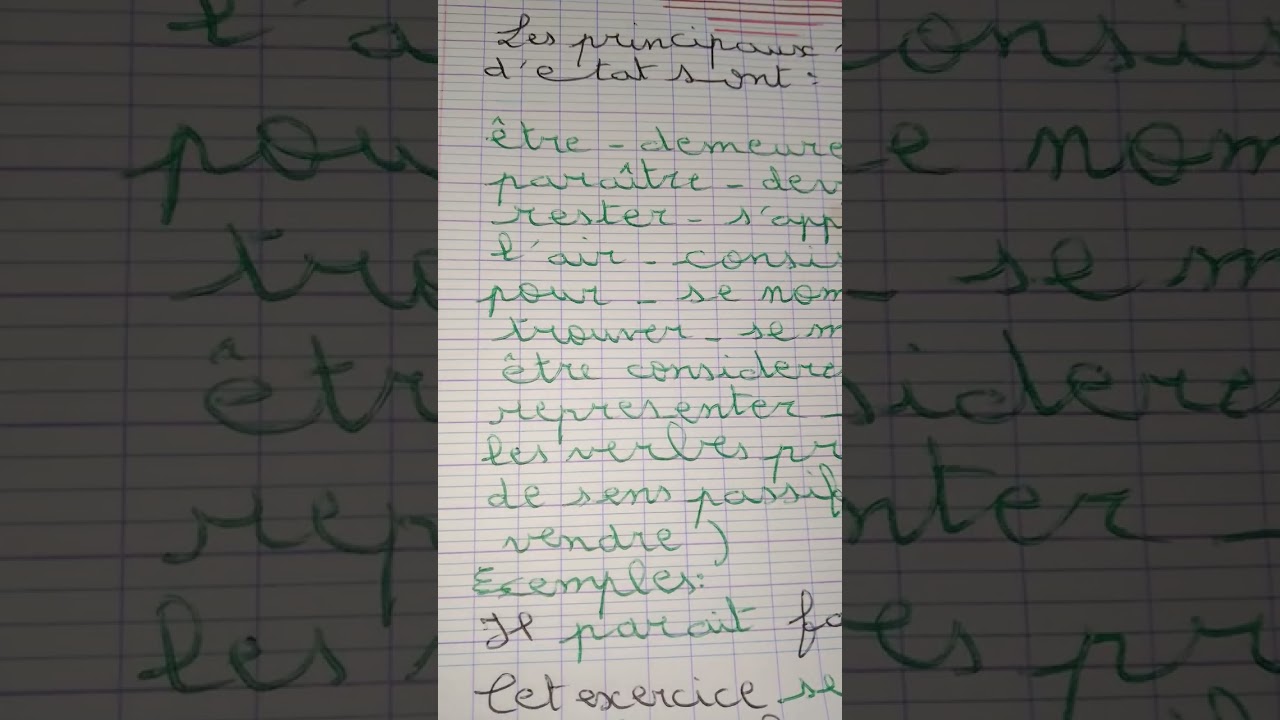 Les principaux
d'etat sont:
être - demeure
paraître - dev
rester - s'app
l'air - consi
pour - se nom
trouver - se m
être considere
representer -
les verbes pr
de sens passif
vendre)
Exemples:
Il parait fa
Cet exercice se